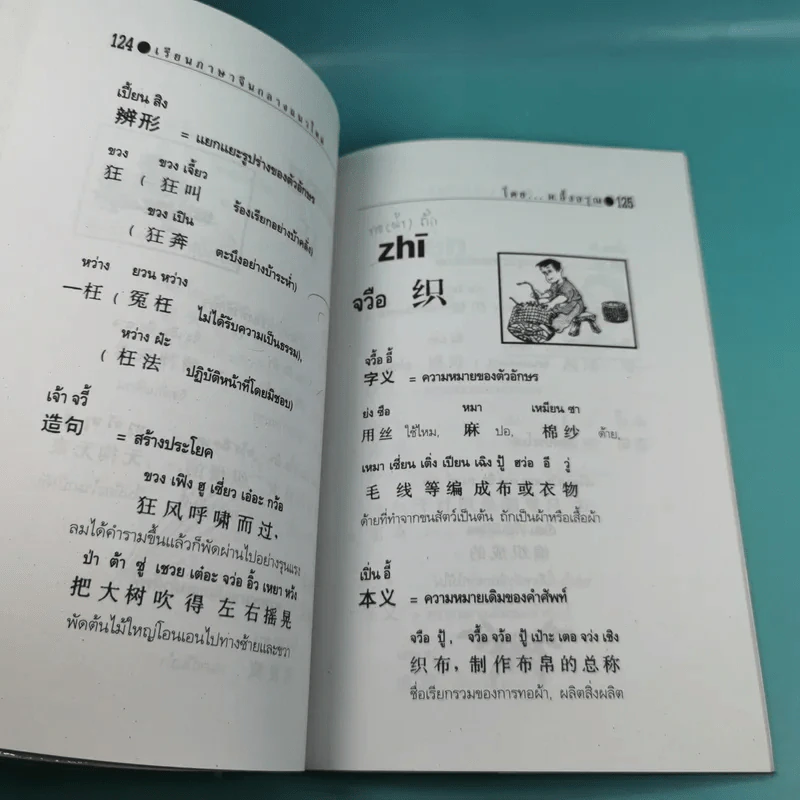 124 ● เรียนภาษาจีนกลางแนวใหม่
เปี้ยน สิง
辨形 = แยกแยะรูปร่างของตัวอักษร
ขวง ขวง เจี้ยว
狂 ( 狂叫 ร้องเรียกอย่างบ้าคลั่ง)
ขวง เปิน
( 狂奔 ตะบึงอย่างบ้าระห่ำ)
หว่าง ยวน หว่าง
一枉 ( 冤枉 ไม่ได้รับความเป็นธรรม),
หว่าง ฝ่ะ
( 枉法 ปฏิบัติหน้าที่โดยมิชอบ)
เจ้า จวี้
造句 = สร้างประโยค
ขวง เฟิง ฮู เซี่ยว เอ๋อะ กว้อ
狂风呼啸而过,
ลมได้คำรามขึ้นแล้วก็พัดผ่านไปอย่างรุนแรง
ป่า ต้า ซู่ เชวย เต๋อะ จว่อ อิ้ว เหยา หว้ง
把大树吹得左右摇晃
พัดต้นไม้ใหญ่โอนเอนไปทางซ้ายและขวา
โดย... ● 125
zhī
จวือ 织
จวื้อ อี้
字义 = ความหมายของตัวอักษร
ย่ง ซือ หมา เหมียน ซา
用丝 ใช้ไหม, 麻 ปอ, 棉纱 ด้าย,
เหมา เซี่ยน เติ่ง เปียน เฉิง ปู้ ฮว่อ อี วู่
毛线等编成布或衣物
ด้ายที่ทำจากขนสัตว์เป็นต้น ถักเป็นผ้าหรือเสื้อผ้า
เปิ่น อี้
本义 = ความหมายเดิมของคำศัพท์
จวือ ปู้, จวื้อ จว้อ ปู้ เป๋าะ เตอ จว่ง เชิง
织布, 制作布帛的总称
ชื่อเรียกรวมของการทอผ้า, ผลิตสิ่งผลิต